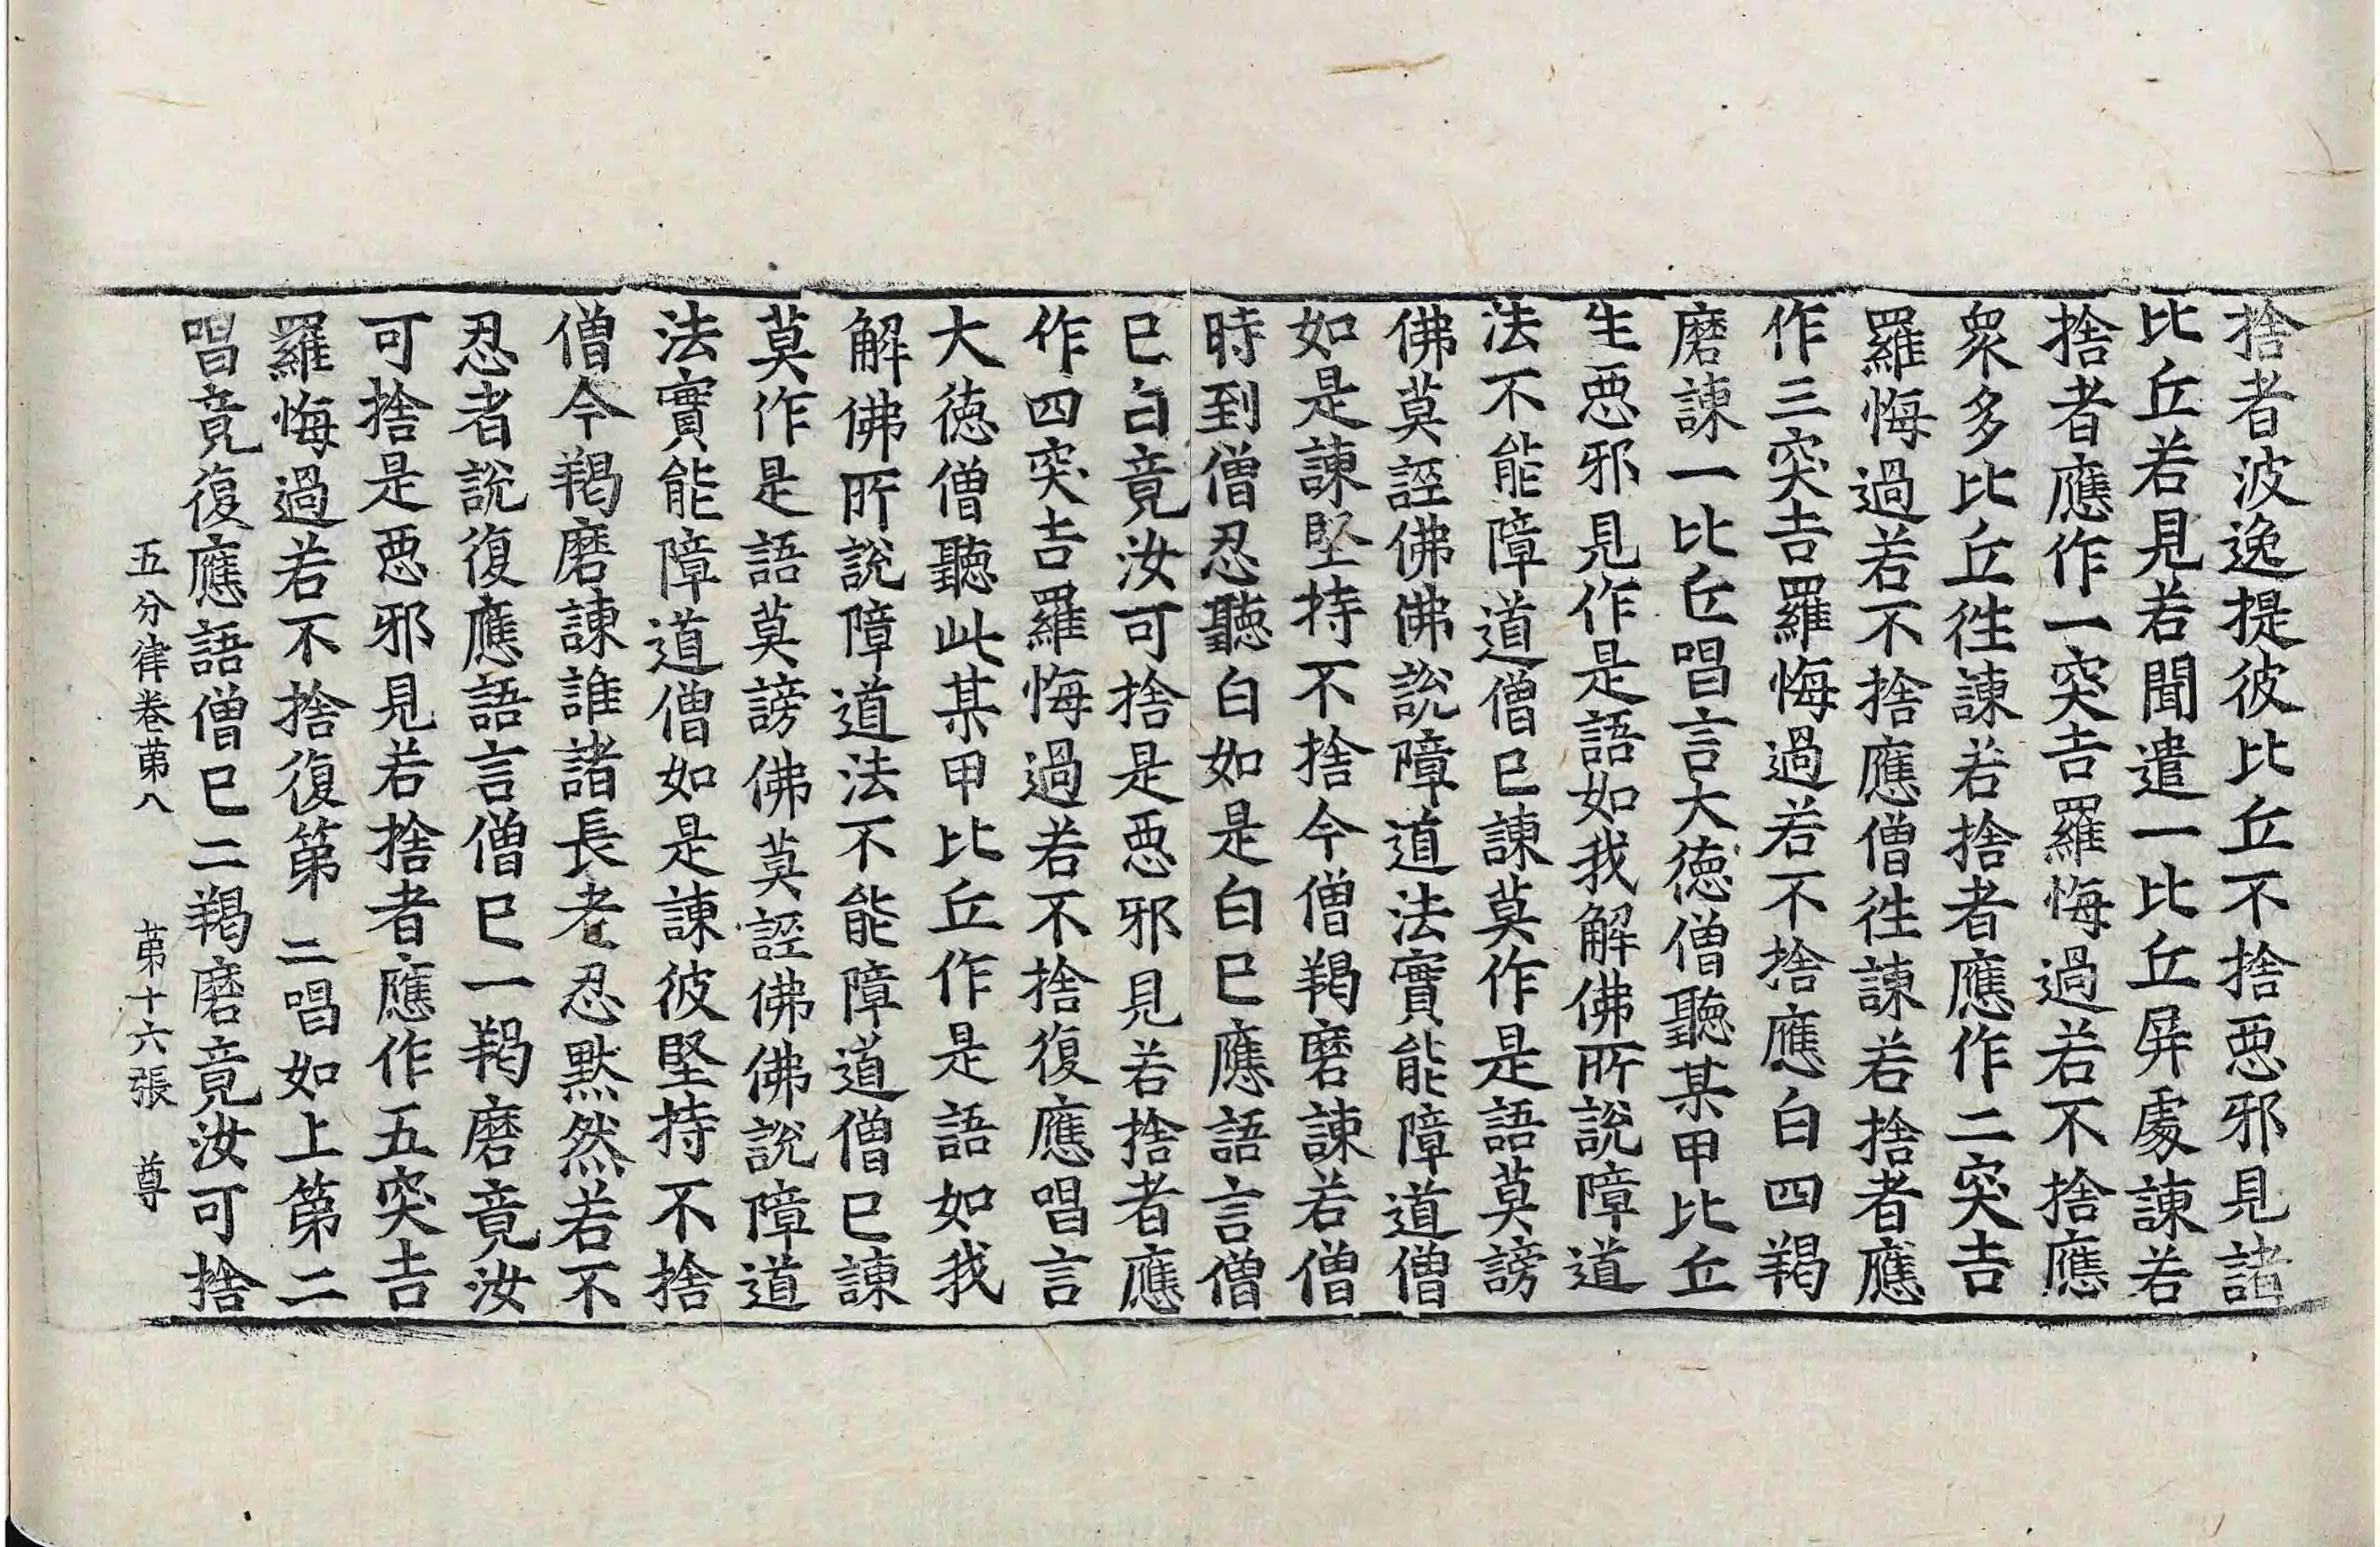 捨者波逸提彼比丘不捨惡邪見諸
比丘若見若聞遣一比丘屛處諫若
捨者應作一突吉羅悔過若不捨應
衆多比丘往諫若捨者應作二突吉
羅悔過若不捨應僧往諫若捨者應
作三突吉羅悔過若不捨應白四羯
磨諫一比丘唱言大德僧聽某甲比丘
生惡邪見作是語如我解佛所說障道
法不能障道僧已諫莫作是語莫謗
佛莫誣佛佛說障道法實能障道僧
如是諫堅持不捨今僧羯磨諫若僧
時到僧忍聽白如是白已應語言僧
已白竟汝可捨是惡邪見若捨者應
作四突吉羅悔過若不捨復應唱言
大德僧聽此某甲比丘作是語如我
解佛所說障道法不能障道僧已諫
莫作是語莫謗佛莫誣佛佛說障道
法實能障道僧如是諫彼堅持不捨
僧今羯磨諫誰諸長老忍默然若不
忍者說復應語言僧已一羯磨竟汝
可捨是惡邪見若捨者應作五突吉
羅悔過若不捨復第二唱如上第二
唱竟復應語僧已二羯磨竟汝可捨
五分律卷第八 第十六張 尊